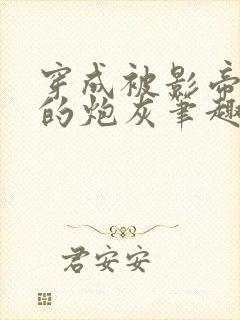 穿成被影帝
的炮灰笔趣
君安安